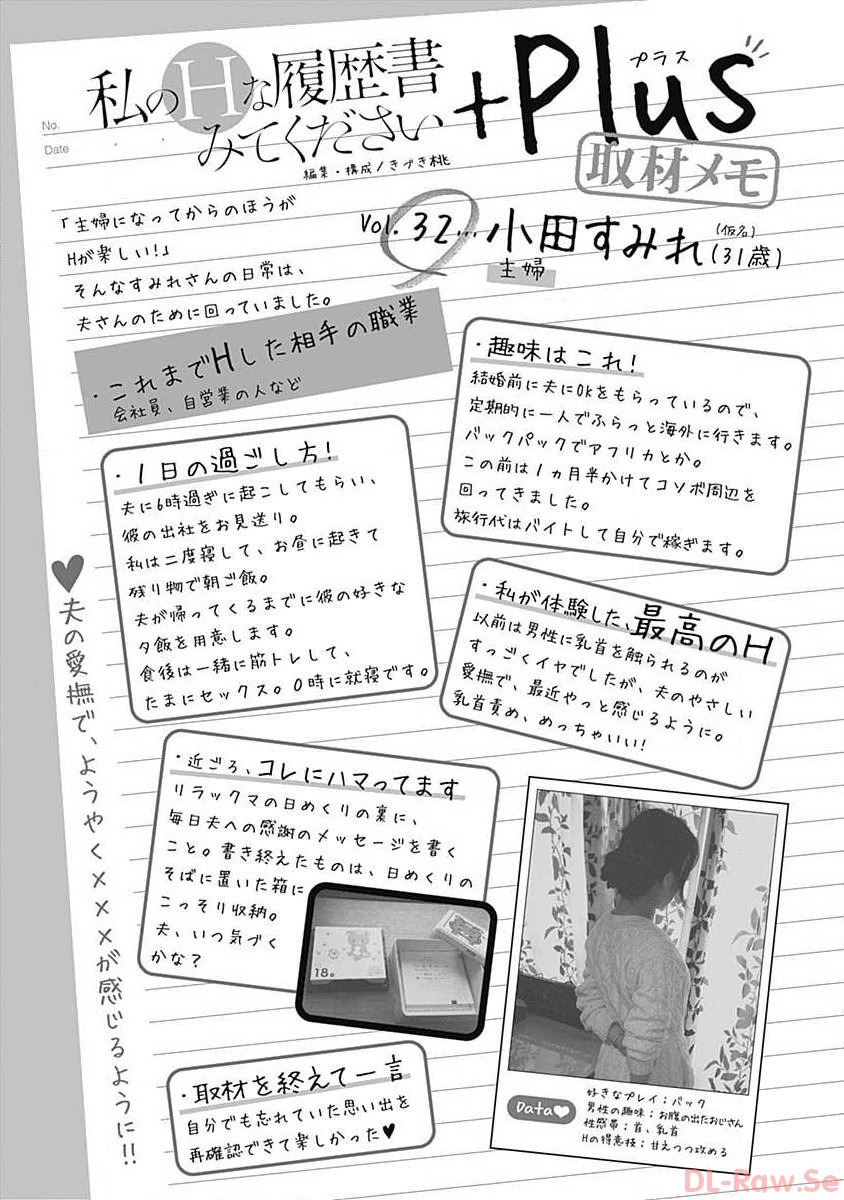 No.
Date
私のHな履歴書
みてください
+Plus
プラス
編集・構成/きづき桃
取材メモ
「主婦になってからのほうが
Hが楽しい!」
そんなすみれさんの日常は、
夫さんのために回っていました。
Vol.32…小田すみれ(31歳)
(仮名)
主婦
・これまでHした相手の職業
会社員、自営業の人など
・趣味はこれ!
結婚前に夫にOKをもらっているので、
定期的に一人でふらっと海外に行きます。
バックパックでアフリカとか。
この前は1ヵ月半かけてコソボ周辺を
回ってきました。
旅行代はバイトして自分で稼ぎます。
・1日の過ごし方!
夫に6時過ぎに起こしてもらい、
彼の出社をお見送り。
私は二度寝して、お昼に起きて
残り物で朝ご飯。
夫が帰ってくるまでに彼の好きな
夕飯を用意します。
食後は一緒に筋トレして、
たまにセックス。0時に就寝です。
・私が体験した、最高のH
以前は男性に乳首を触られるのが
すっごくイヤでしたが、夫のやさしい
愛撫で、最近やっと感じるように。
乳首責め、めっちゃいい!
♥夫の愛撫で、ようやく×××が感じるように!!
・近ごろ、コレにハマってます
リラックマの日めくりの裏に、
毎日夫への感謝のメッセージを書く
こと。書き終えたものは、日めくりの
そばに置いた箱に
こっそり収納。
夫、いつ気づく
かな?
18
・取材を終えて一言
自分でも忘れていた思い出を
再確認できて楽しかった♥
Data♥
好きなプレイ:バック
男性の趣味:お腹の出たおじさん
性感帯:首、乳首
Hの得意技:甘えつつ攻める
DL-Raw.Se